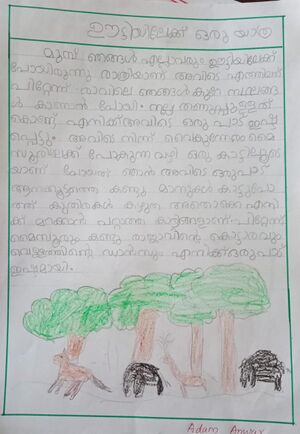 ഊട്ടിയിലേക്ക് ഒരു യാത്ര
മുമ്പ് ഞങ്ങൾ എല്ലാവരും ഊട്ടിയിലേക്ക്
പോയിരുന്നു രാത്രിയാണ് അവിടെ എത്തിയത്
പിറ്റേന്ന് രാവിലെ ഞങ്ങൾ കുറേ സ്ഥലങ്ങ
ൾ കാണാൻ പോയി. നല്ല തണുപ്പുള്ളത്
കൊണ്ട് എനിക്ക് അവിടെ ഒരു പാട് ഇഷ്ട
പ്പെട്ടു. അവിടെ നിന്ന് വൈകുന്നേരം മൈ
സൂരിലേക്ക് പോകുന്ന വഴി ഒരു കാട്ടിലൂടെ
യാണ് പോയത് ഞാൻ അവിടെ ഒരുപാട്
ആനക്കൂട്ടത്തെ കണ്ടു മാനുകൾ കാട്ടുപോ
ത്ത് കുതിരകൾ കഴുത അതൊക്കെ എനി
ക്ക് മറക്കാൻ പറ്റാത്ത കാഴ്ചകളാണ് പിറ്റേന്ന്
മൈസൂരും കണ്ടു രാജാവിന്റെ കൊട്ടാരവും
വെള്ളത്തിന്റെ ഡാൻസും എനിക്ക് ഒരുപാട്
ഇഷ്ടമായി.
Adam Anwar